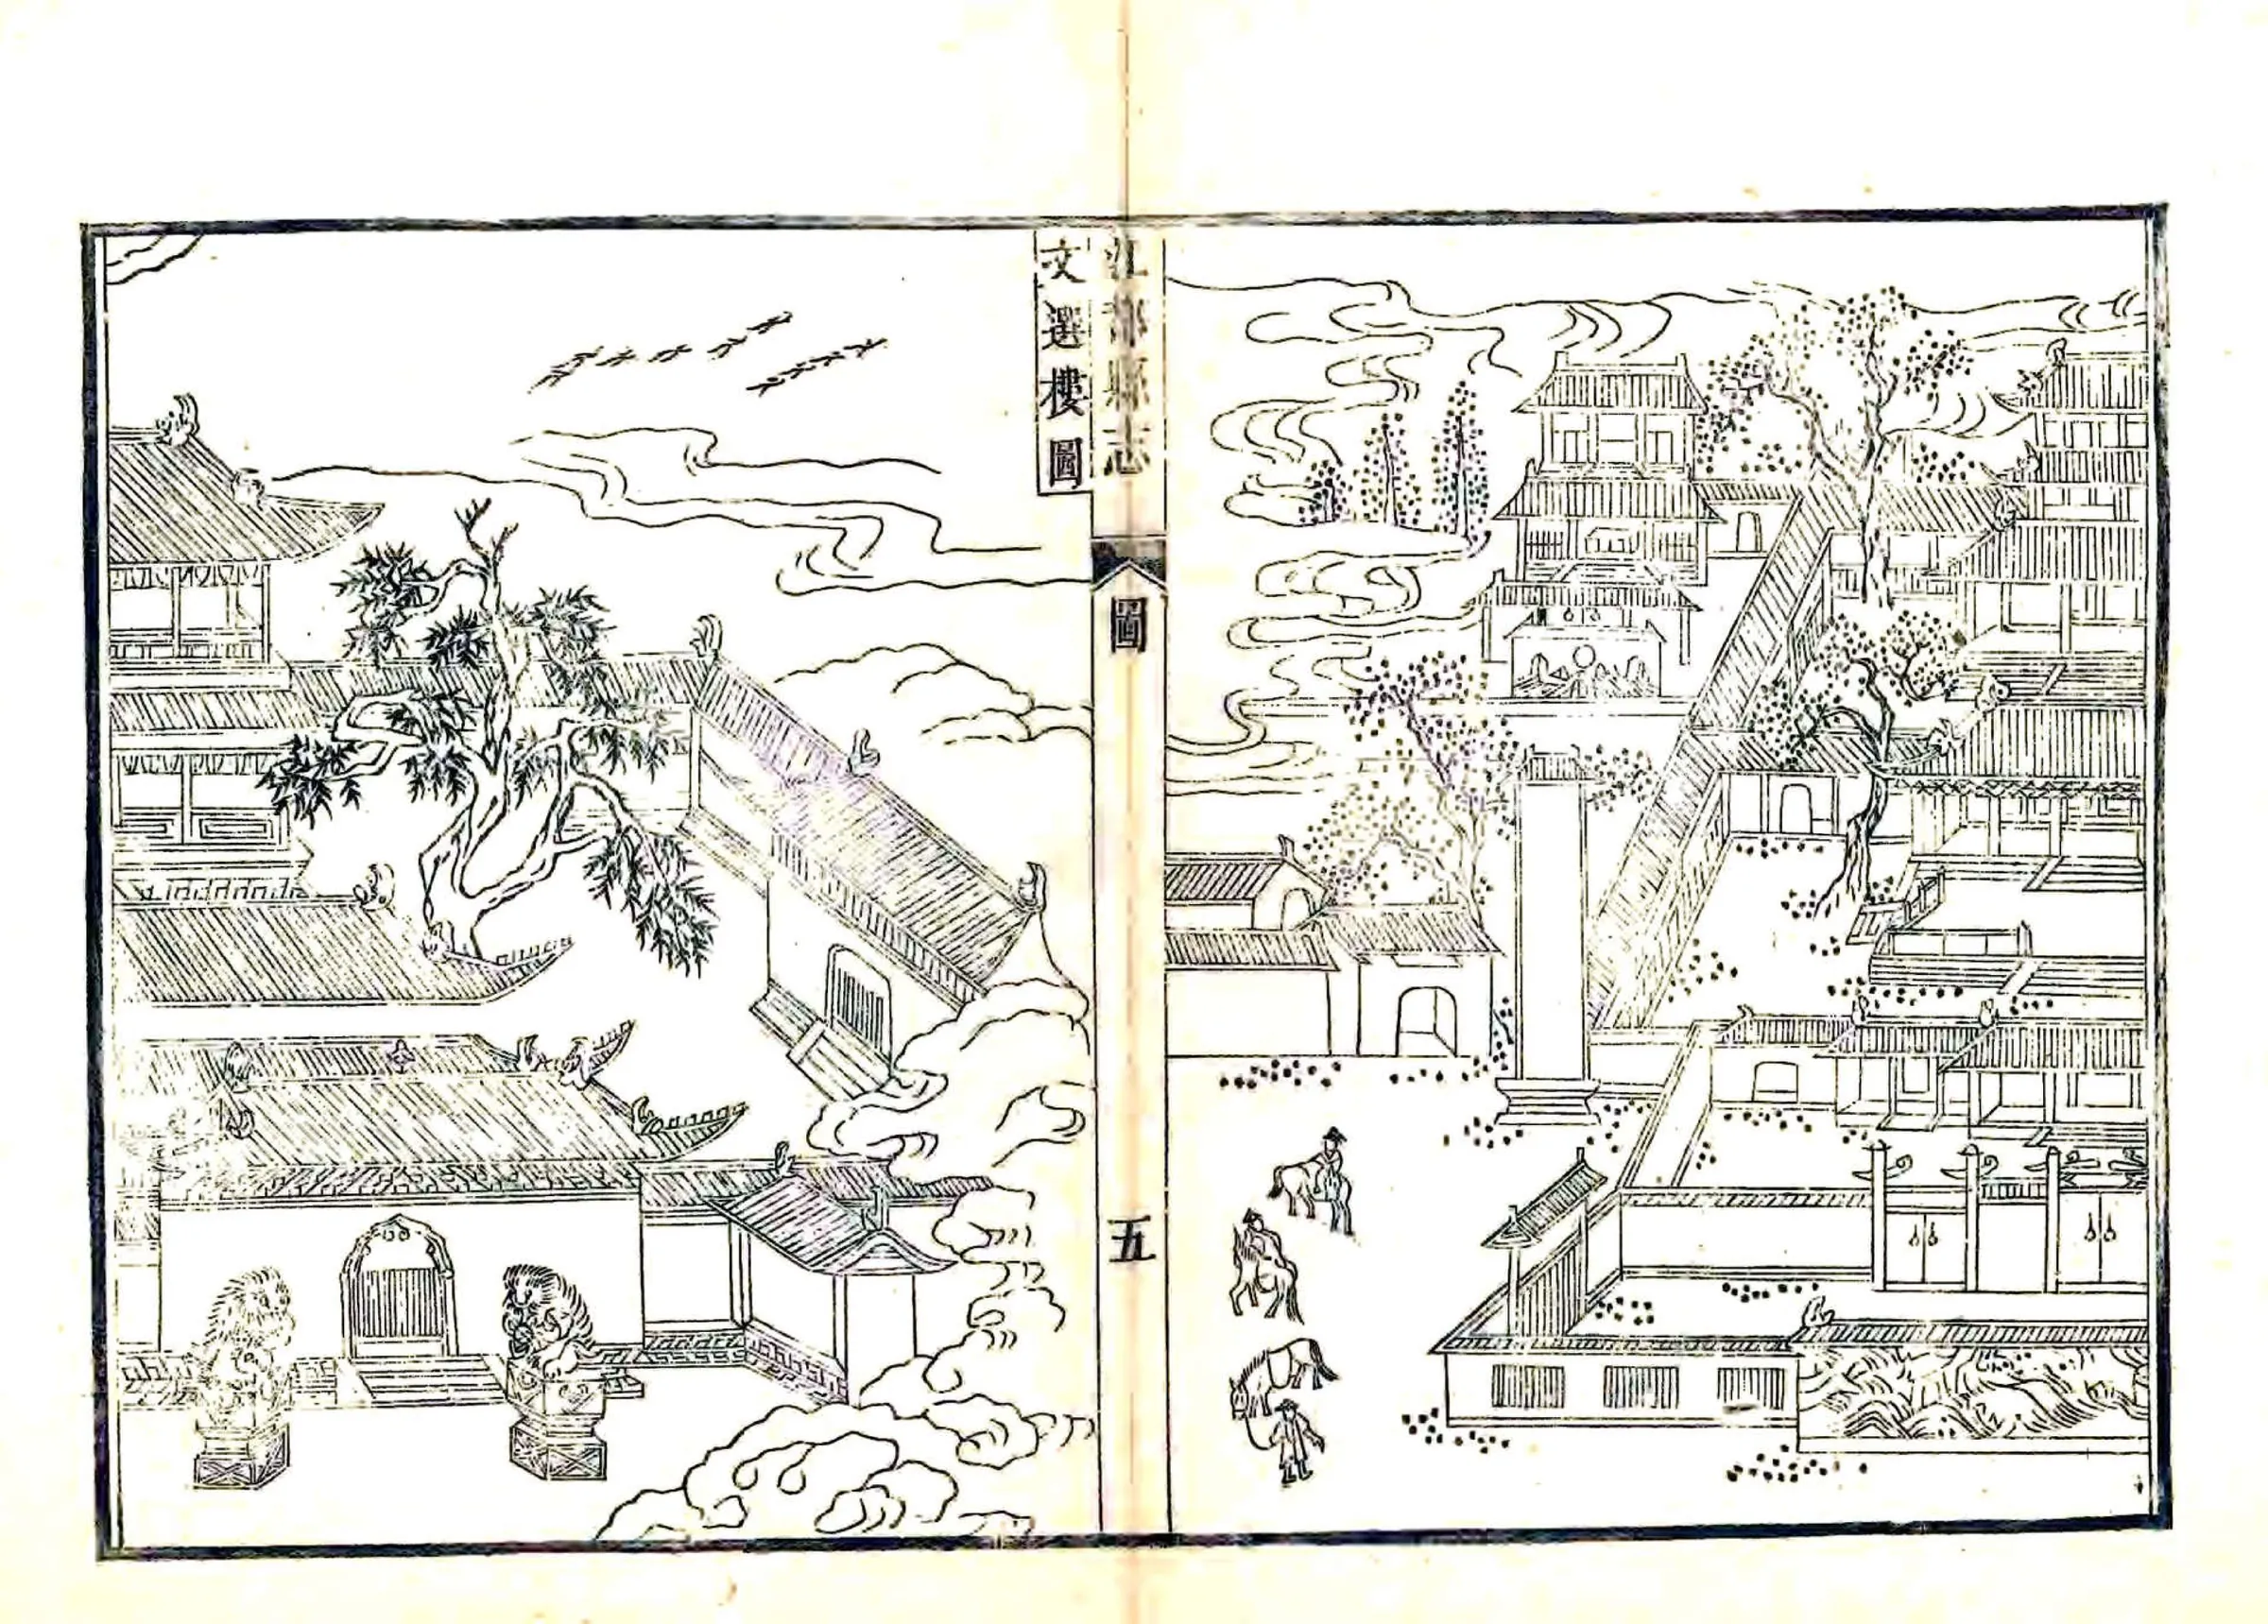 江都縣志
圖
五
文選樓圖